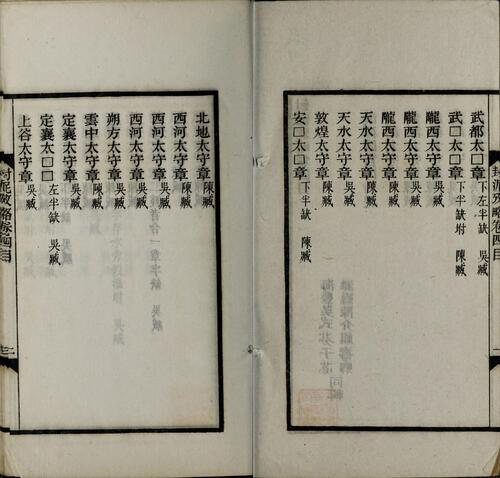 封泥攷略卷四目
武都太□章 下左半缺 吳臧
武□太□章 下半缺坿 陳臧
隴西太守章 吳臧
隴西太守章 吳臧
隴西太守章 陳臧
天水太守章 陳臧
天水太守章 吳臧
敦煌太守章 陳臧
安□太□章 下半缺 陳臧
北地太守章 陳臧
西河太守章 陳臧
西河太守章 吳臧
西河太守章 吳臧
朔方太守章 吳臧
雲中太守章 陳臧
定襄太守章 吳臧
定襄太□□ 左半缺 吳臧
上谷太守章 吳臧
封泥攷略卷四目
二